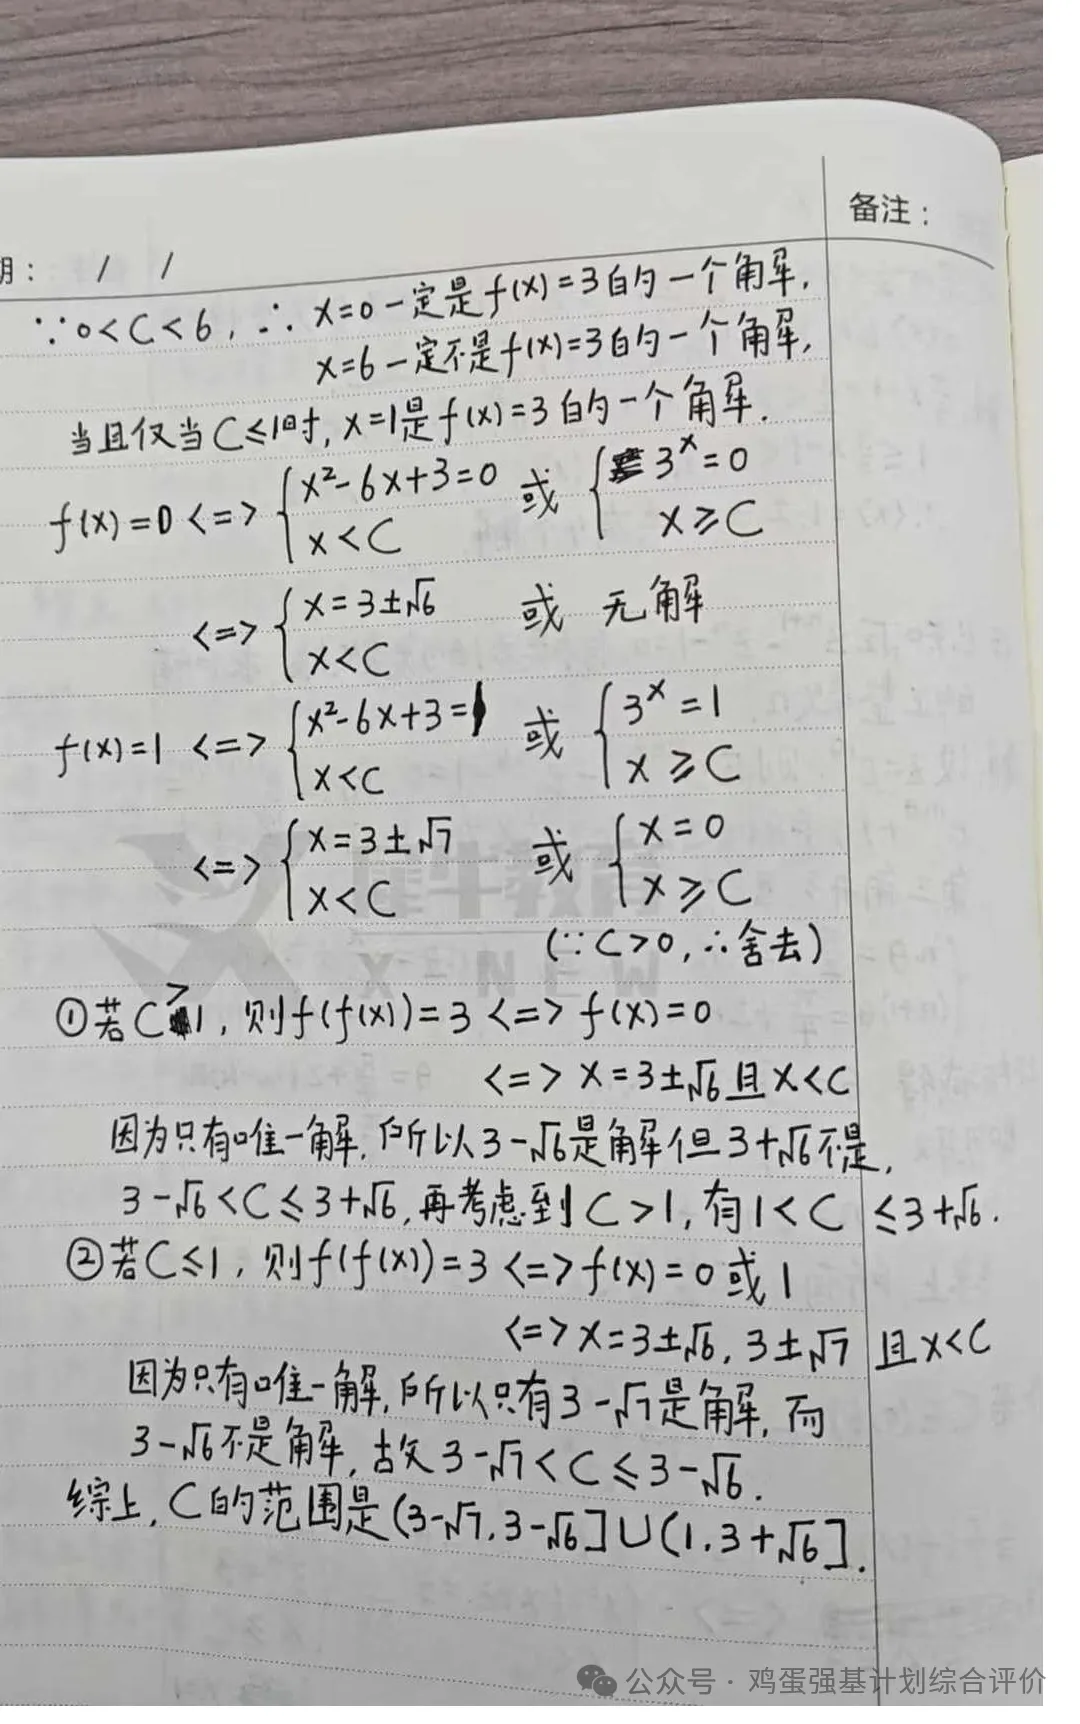 备注：
期： / /
∵0<C<6，∴ x=0一定是f(x)=3的一个解，
x=6一定不是f(x)=3的一个解，
当且仅当C≤1时，x=1是f(x)=3的一个解．
f(x)=0 <=> { x²-6x+3=0 x<C 或 { 3^x=0 x≥C
<=> { x=3±√6 x<C 或 无解
f(x)=1 <=> { x²-6x+3=1 x<C 或 { 3^x=1 x≥C
<=> { x=3±√7 x<C 或 { x=0 x≥C
(∵C>0，∴舍去)
犀牛教育
X-NEW
①若C>1，则f(f(x))=3 <=> f(x)=0
<=> x=3±√6且x<C
因为只有唯一解，所以3-√6是解但3+√6不是，
3-√6<C≤3+√6，再考虑到C>1，有1<C ≤3+√6．
②若C≤1，则f(f(x))=3 <=> f(x)=0或1
<=> x=3±√6，3±√7 且x<C
因为只有唯一解，所以只有3-√7是解，而
3-√6不是解，故3-√7<C≤3-√6．
综上，C的范围是(3-√7，3-√6]∪(1，3+√6]．
公众号·鸡蛋强基计划综合评价